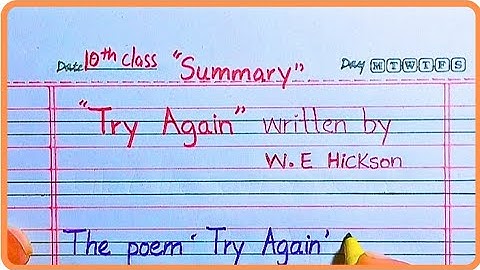 Date 10th class "Summary". Day M T W T F S
"Try Again" written by
W.E Hickson
The poem 'Try Again'